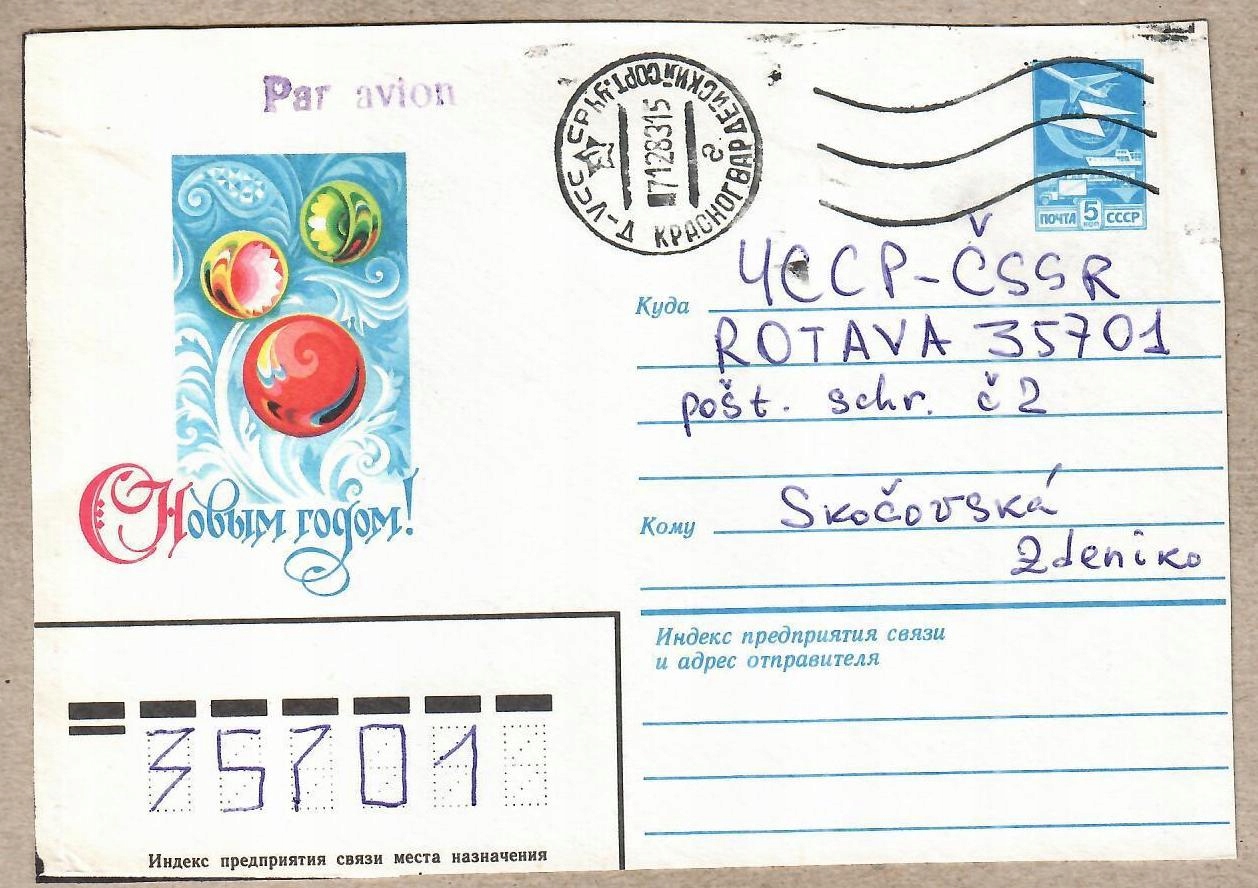 Par avion
КРАСНОГВАРДЕЙСКИЙ СОРТ.УЧ
7128315
ПОЧТА 5 КОП СССР
С Новым годом!
Куда ЧССР-ČSSR
ROTAVA 35701
pošt. schr. č 2
Кому Skočovská
Zdeniko
Индекс предприятия связи
и адрес отправителя
35701
Индекс предприятия связи места назначения